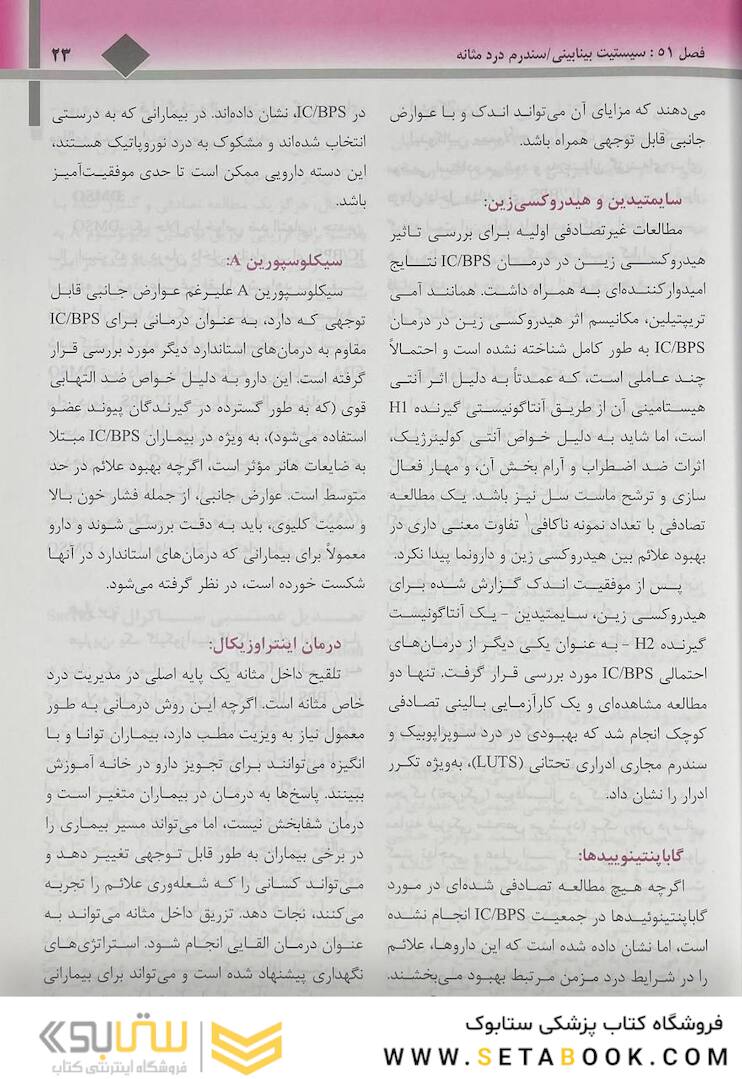 فصل ۵۱ : سیستیت بینابینی/سندرم درد مثانه
۲۳
می‌دهند که مزایای آن می‌تواند اندک و با عوارض
جانبی قابل توجهی همراه باشد.
سایمتیدین و هیدروکسی‌زین:
مطالعات غیرتصادفی اولیه برای بررسی تاثیر
هیدروکسی زین در درمان IC/BPS نتایج
امیدوارکننده‌ای به همراه داشت. همانند آمی
تریپتیلین، مکانیسم اثر هیدروکسی زین در درمان
IC/BPS به طور کامل شناخته نشده است و احتمالاً
چند عاملی است، که عمدتاً به دلیل اثر آنتی
هیستامینی آن از طریق آنتاگونیستی گیرنده H1
است، اما شاید به دلیل خواص آنتی کولینرژیک،
اثرات ضد اضطراب و آرام بخش آن، و مهار فعال
سازی و ترشح ماست سل نیز باشد. یک مطالعه
تصادفی با تعداد نمونه ناکافی۱ تفاوت معنی داری در
بهبود علائم بین هیدروکسی زین و دارونما پیدا نکرد.
پس از موفقیت اندک گزارش شده برای
هیدروکسی زین، سایمتیدین - یک آنتاگونیست
گیرنده H2 - به عنوان یکی دیگر از درمان‌های
احتمالی IC/BPS مورد بررسی قرار گرفت. تنها دو
مطالعه مشاهده‌ای و یک کارآزمایی بالینی تصادفی
کوچک انجام شد که بهبودی در درد سوپراپوبیک و
سندرم مجاری ادراری تحتانی (LUTS)، به‌ویژه تکرر
ادرار را نشان داد.
گاباپنتینوییدها:
اگرچه هیچ مطالعه تصادفی شده‌ای در مورد
گاباپنتینوئیدها در جمعیت IC/BPS انجام نشده
است، اما نشان داده شده است که این داروها، علائم
را در شرایط درد مزمن مرتبط بهبود می‌بخشند.
در IC/BPS، نشان داده‌اند. در بیمارانی که به درستی
انتخاب شده‌اند و مشکوک به درد نوروپاتیک هستند،
این دسته دارویی ممکن است تا حدی موفقیت‌آمیز
باشد.
سیکلوسپورین A:
سیکلوسپورین A علیرغم عوارض جانبی قابل
توجهی که دارد، به عنوان درمانی برای IC/BPS
مقاوم به درمان‌های استاندارد دیگر مورد بررسی قرار
گرفته است. این دارو به دلیل خواص ضد التهابی
قوی (که به طور گسترده در گیرندگان پیوند عضو
استفاده می‌شود)، به ویژه در بیماران IC/BPS مبتلا
به ضایعات هانر مؤثر است، اگرچه بهبود علائم در حد
متوسط است. عوارض جانبی، از جمله فشار خون بالا
و سمیت کلیوی، باید به دقت بررسی شوند و دارو
معمولاً برای بیمارانی که درمان‌های استاندارد در آنها
شکست خورده است، در نظر گرفته می‌شود.
درمان اینتراوزیکال:
تلقیح داخل مثانه یک پایه اصلی در مدیریت درد
خاص مثانه است. اگرچه این روش درمانی به طور
معمول نیاز به ویزیت مطب دارد، بیماران توانا و با
انگیزه می‌توانند برای تجویز دارو در خانه آموزش
ببینند. پاسخ‌ها به درمان در بیماران متغیر است و
درمان شفابخش نیست، اما می‌تواند مسیر بیماری را
در برخی بیماران به طور قابل توجهی تغییر دهد و
می‌تواند کسانی را که شعله‌وری علائم را تجربه
می‌کنند، نجات دهد. تزریق داخل مثانه می‌تواند به
عنوان درمان القایی انجام شود. استراتژی‌های
نگهداری پیشنهاد شده است و می‌تواند برای بیمارانی
فروشگاه کتاب پزشکی ستابوک
WWW.SETABOOK.COM
ستابوک
فروشگاه اینترنتی کتاب